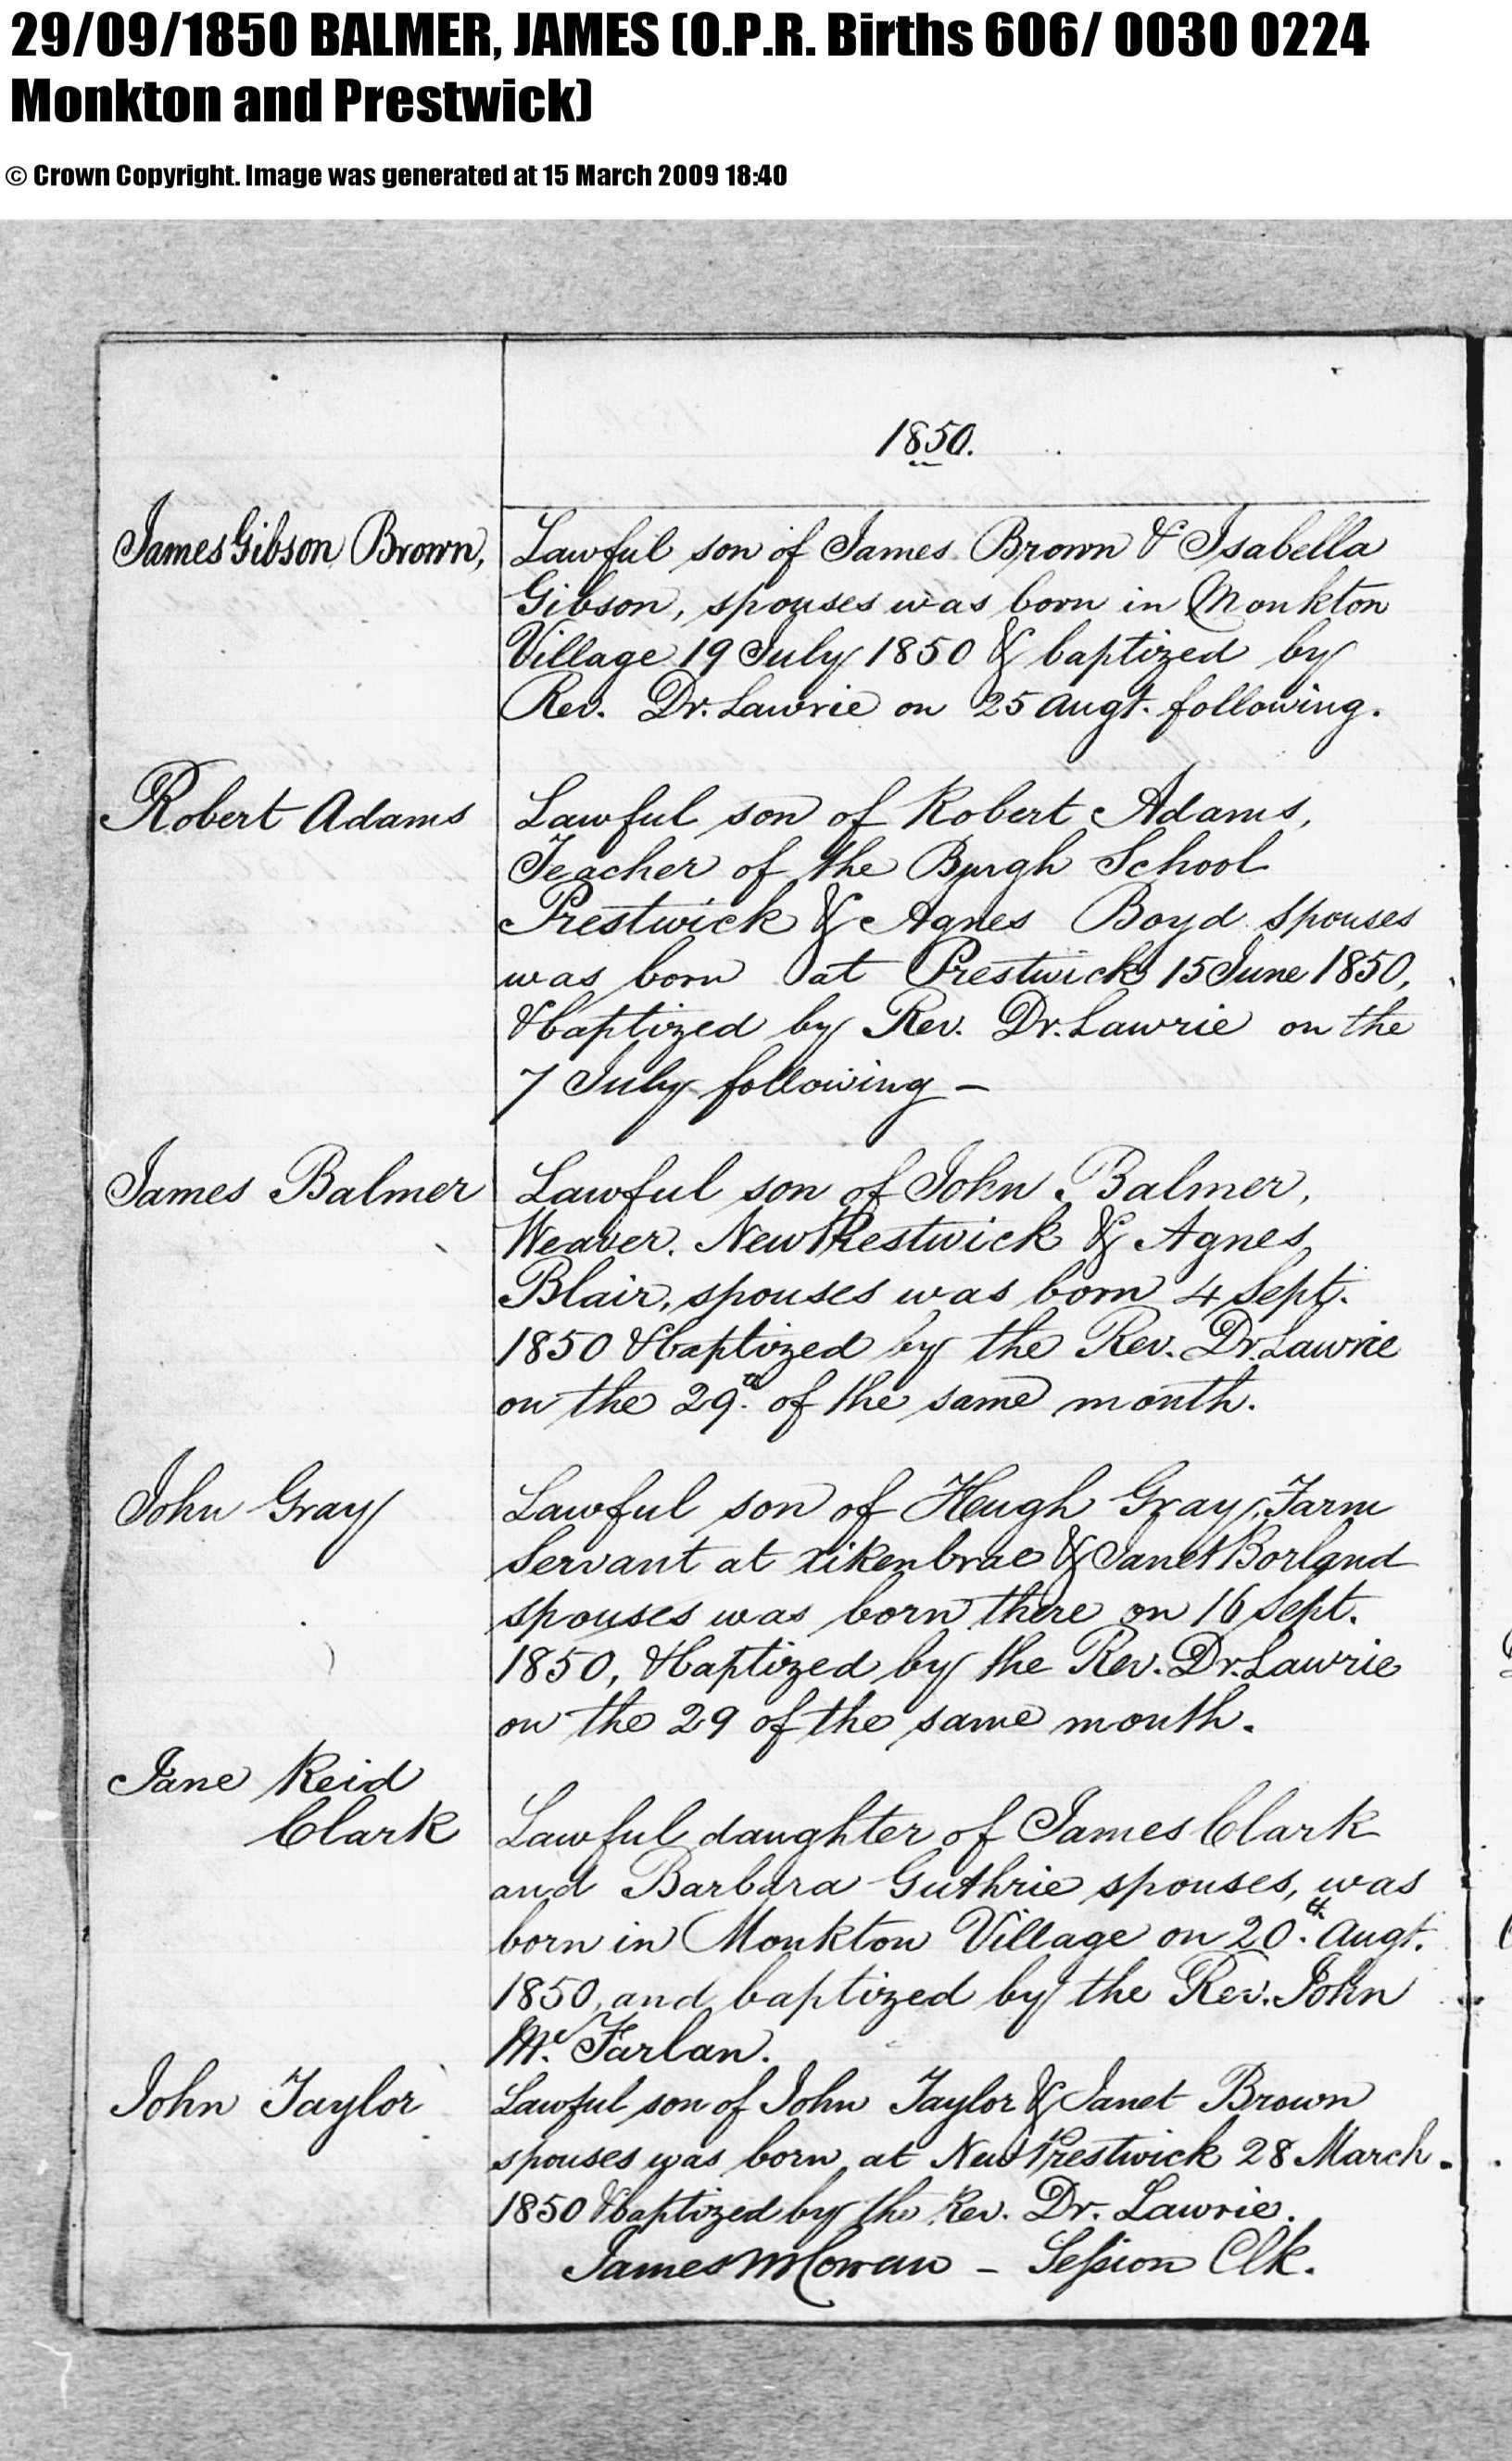 29/09/1850 BALMER, JAMES (O.P.R. Births 606/ 0030 0224
Monkton and Prestwick)
© Crown Copyright. Image was generated at 15 March 2009 18:40
1850.
James Gibson Brown,
Lawful son of James Brown & Isabella
Gibson, spouses was born in Monkton
Village 19 July 1850 & baptized by
Rev. Dr. Lawrie on 25 Augt. following.
Robert Adams
Lawful son of Robert Adams,
Teacher of the Burgh School
Prestwick & Agnes Boyd spouses
was born at Prestwick 15 June 1850,
& baptized by Rev. Dr. Lawrie on the
7 July following –
James Balmer
Lawful son of John Balmer,
Weaver. New Prestwick & Agnes
Blair, spouses was born 4 Sept.
1850 & baptized by the Rev. Dr. Lawrie
on the 29th of the same month.
John Gray
Lawful son of Hugh Gray, Farm
Servant at & Janet Borland
spouses was born there on 16 Sept.
1850, & baptized by the Rev. Dr. Lawrie
on the 29 of the same month.
Jane Reid
Clark
Lawful daughter of James Clark
and Barbara Guthrie spouses, was
born in Monkton Village on 20th Augt.
1850, and baptized by the Rev. John
Mc. Farlan.
John Taylor
Lawful son of John Taylor & Janet Brown
spouses was born at New Prestwick 28 March
1850 & baptized by the Rev. Dr. Lawrie.
James McCowan – Session Clk.